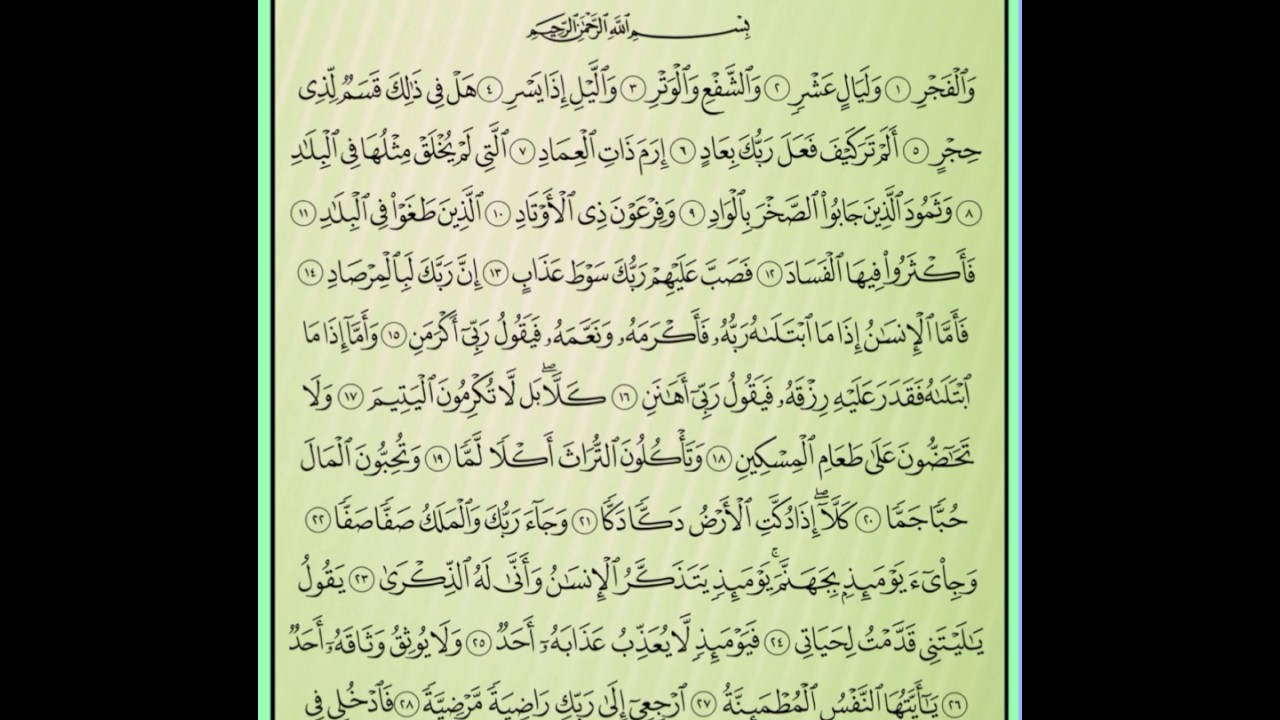 بِسْمِ اللَّهِ الرَّحْمَٰنِ الرَّحِيمِ
وَٱلْفَجْرِ ١ وَلَيَالٍ عَشْرٍ ٢ وَٱلشَّفْعِ وَٱلْوَتْرِ ٣ وَٱلَّيْلِ إِذَا يَسْرِ ٤ هَلْ فِى ذَٰلِكَ قَسَمٌ لِّذِى
حِجْرٍ ٥ أَلَمْ تَرَ كَيْفَ فَعَلَ رَبُّكَ بِعَادٍ ٦ إِرَمَ ذَاتِ ٱلْعِمَادِ ٧ ٱلَّتِى لَمْ يُخْلَقْ مِثْلُهَا فِى ٱلْبِلَٰدِ
٨ وَثَمُودَ ٱلَّذِينَ جَابُوا۟ ٱلصَّخْرَ بِٱلْوَادِ ٩ وَفِرْعَوْنَ ذِى ٱلْأَوْتَادِ ١٠ ٱلَّذِينَ طَغَوْا۟ فِى ٱلْبِلَٰدِ ١١
فَأَكْثَرُوا۟ فِيهَا ٱلْفَسَادَ ١٢ فَصَبَّ عَلَيْهِمْ رَبُّكَ سَوْطَ عَذَابٍ ١٣ إِنَّ رَبَّكَ لَبِٱلْمِرْصَادِ ١٤
فَأَمَّا ٱلْإِنسَٰنُ إِذَا مَا ٱبْتَلَىٰهُ رَبُّهُۥ فَأَكْرَمَهُۥ وَنَعَّمَهُۥ فَيَقُولُ رَبِّىٓ أَكْرَمَنِ ١٥ وَأَمَّآ إِذَا مَا
ٱبْتَلَىٰهُ فَقَدَرَ عَلَيْهِ رِزْقَهُۥ فَيَقُولُ رَبِّىٓ أَهَٰنَنِ ١٦ كَلَّا ۖ بَل لَّا تُكْرِمُونَ ٱلْيَتِيمَ ١٧ وَلَا
تَحَٰٓضُّونَ عَلَىٰ طَعَامِ ٱلْمِسْكِينِ ١٨ وَتَأْكُلُونَ ٱلتُّرَاثَ أَكْلًا لَّمًّا ١٩ وَتُحِبُّونَ ٱلْمَالَ
حُبًّا جَمًّا ٢٠ كَلَّآ ۖ إِذَا دُكَّتِ ٱلْأَرْضُ دَكًّا دَكًّا ٢١ وَجَآءَ رَبُّكَ وَٱلْمَلَكُ صَفًّا صَفًّا ٢٢
وَجِا۟ىٓءَ يَوْمَئِذٍۭ بِجَهَنَّمَ ۚ يَوْمَئِذٍ يَتَذَكَّرُ ٱلْإِنسَٰنُ وَأَنَّىٰ لَهُ ٱلذِّكْرَىٰ ٢٣ يَقُولُ
يَٰلَيْتَنِى قَدَّمْتُ لِحَيَاتِى ٢٤ فَيَوْمَئِذٍ لَّا يُعَذِّبُ عَذَابَهُۥٓ أَحَدٌ ٢٥ وَلَا يُوثِقُ وَثَاقَهُۥٓ أَحَدٌ
٢٦ يَٰٓأَيَّتُهَا ٱلنَّفْسُ ٱلْمُطْمَئِنَّةُ ٢٧ ٱرْجِعِىٓ إِلَىٰ رَبِّكِ رَاضِيَةً مَّرْضِيَّةً ٢٨ فَٱدْخُلِى فِى